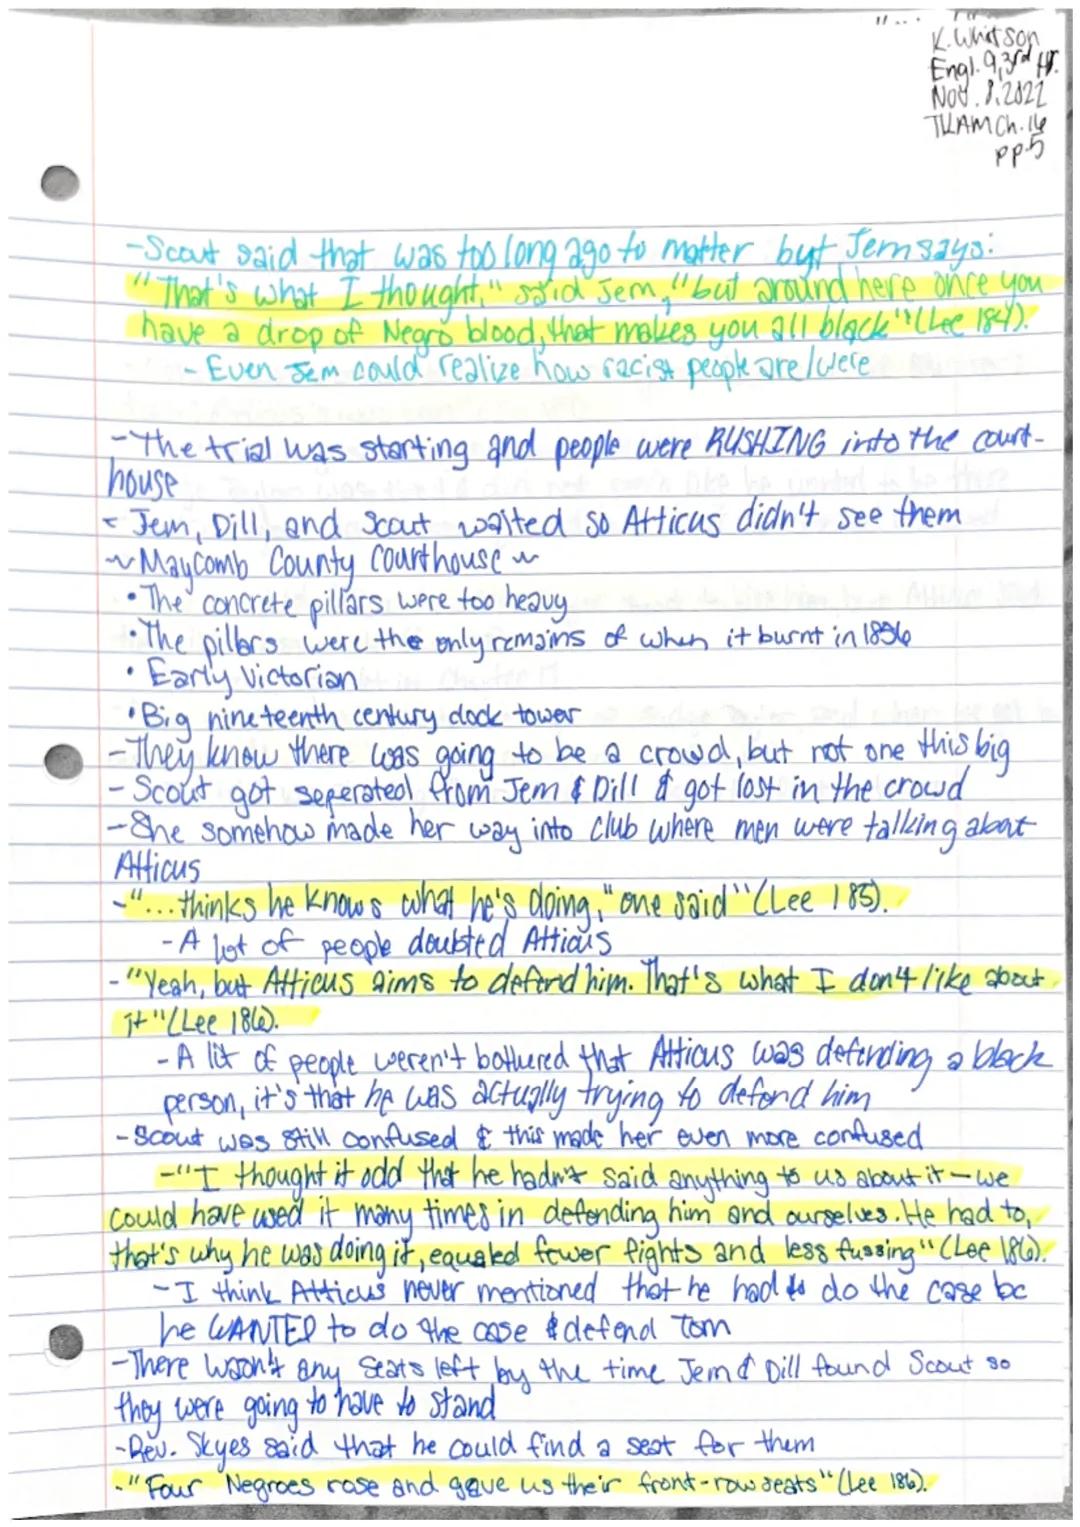 K. Whitson
Engl. 9, 3rd Hr.
Nov. 8, 2022
TKAM Ch. 16
pp.5
-Scout said that was too long ago to matter but Jem says:
"That's what I thought," said Jem, "but around here once you
have a drop of Negro blood, that makes you all black" (Lee 184).
- Even Jem could realize how racist people are/were
-The trial was starting and people were RUSHING into the court-
house
- Jem, Dill, and Scout waited so Atticus didn't see them
~ Maycomb County Courthouse ~
• The concrete pillars were too heavy
• The pillars were the only remains of when it burnt in 1856
• Early Victorian
• Big nineteenth century clock tower
- They knew there was going to be a crowd, but not one this big
- Scout got seperated from Jem & Dill & got lost in the crowd
- She somehow made her way into club where men were talking about
Atticus
-"...thinks he knows what he's doing," one said" (Lee 185).
- A lot of people doubted Atticus
- "Yeah, but Atticus aims to defend him. That's what I don't like about
it" (Lee 186).
- A lot of people weren't bothered that Atticus was defending a black
person, it's that he was actually trying to defend him
- Scout was still confused & this made her even more confused
-"I thought it odd that he hadn't said anything to us about it — we
could have used it many times in defending him and ourselves. He had to,
that's why he was doing it, equaled fewer fights and less fussing" (Lee 186).
- I think Atticus never mentioned that he had to do the case bc
he WANTED to do the case & defend Tom
-There wasn't any seats left by the time Jem & Dill found Scout so
they were going to have to stand
-Rev. Skyes said that he could find a seat for them
-"Four Negroes rose and gave us their front-row seats" (Lee 186).